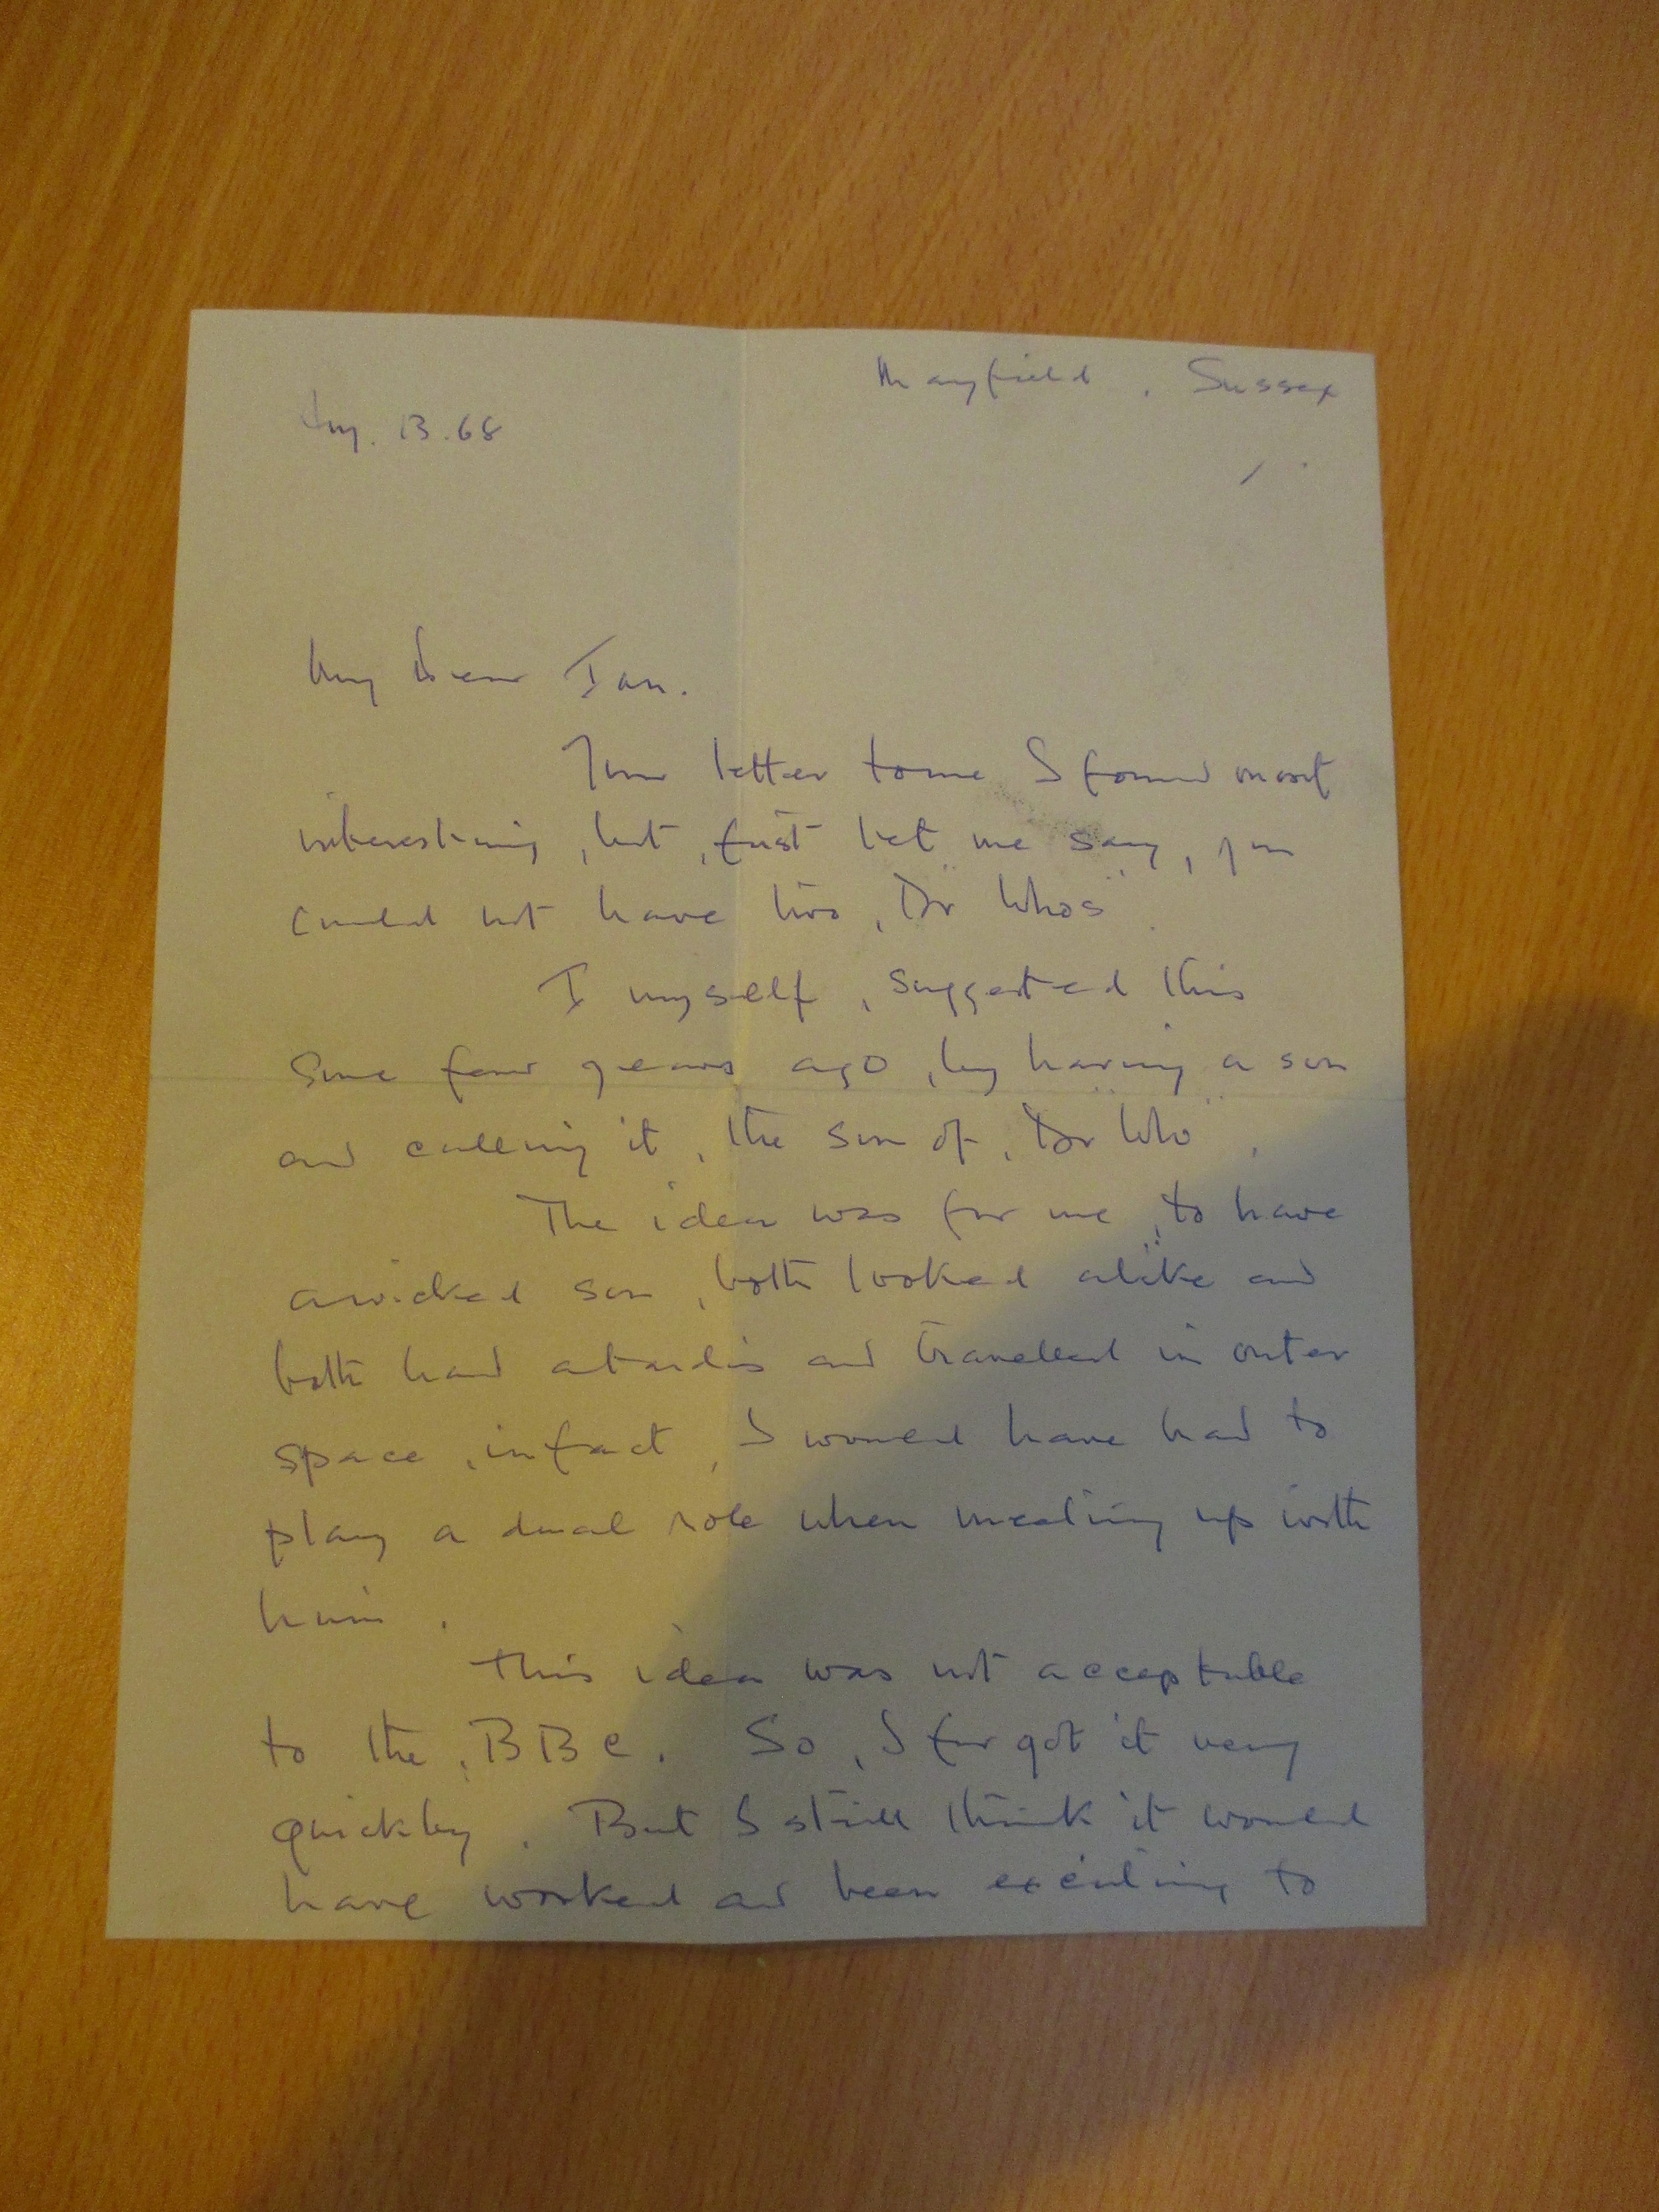 Mayfield, Sussex
Aug. 13. 68
My Dear Ian.
Your letter to me I found most
interesting, but, first let me say, you
could not have two, "Dr Whos".
I myself, suggested this
some four years ago, by having a son
and calling it, the son of, "Dr Who".
The idea was for me, to have
a wicked son, both looked "alike and
both had a tardis and travelled in outer
space, in fact, I would have had to
play a dual role when meeting up with
him.
This idea was not acceptable
to the, BBC. So, I forgot it very
quickly. But I still think it would
have worked and been exciting to